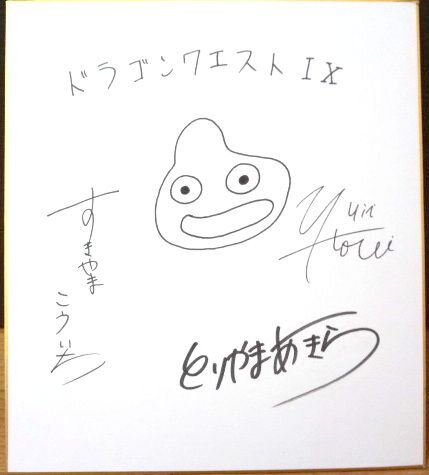 ドラゴンクエストIX
すぎやま
こういち
Yuji
Horii
とりやまあきら